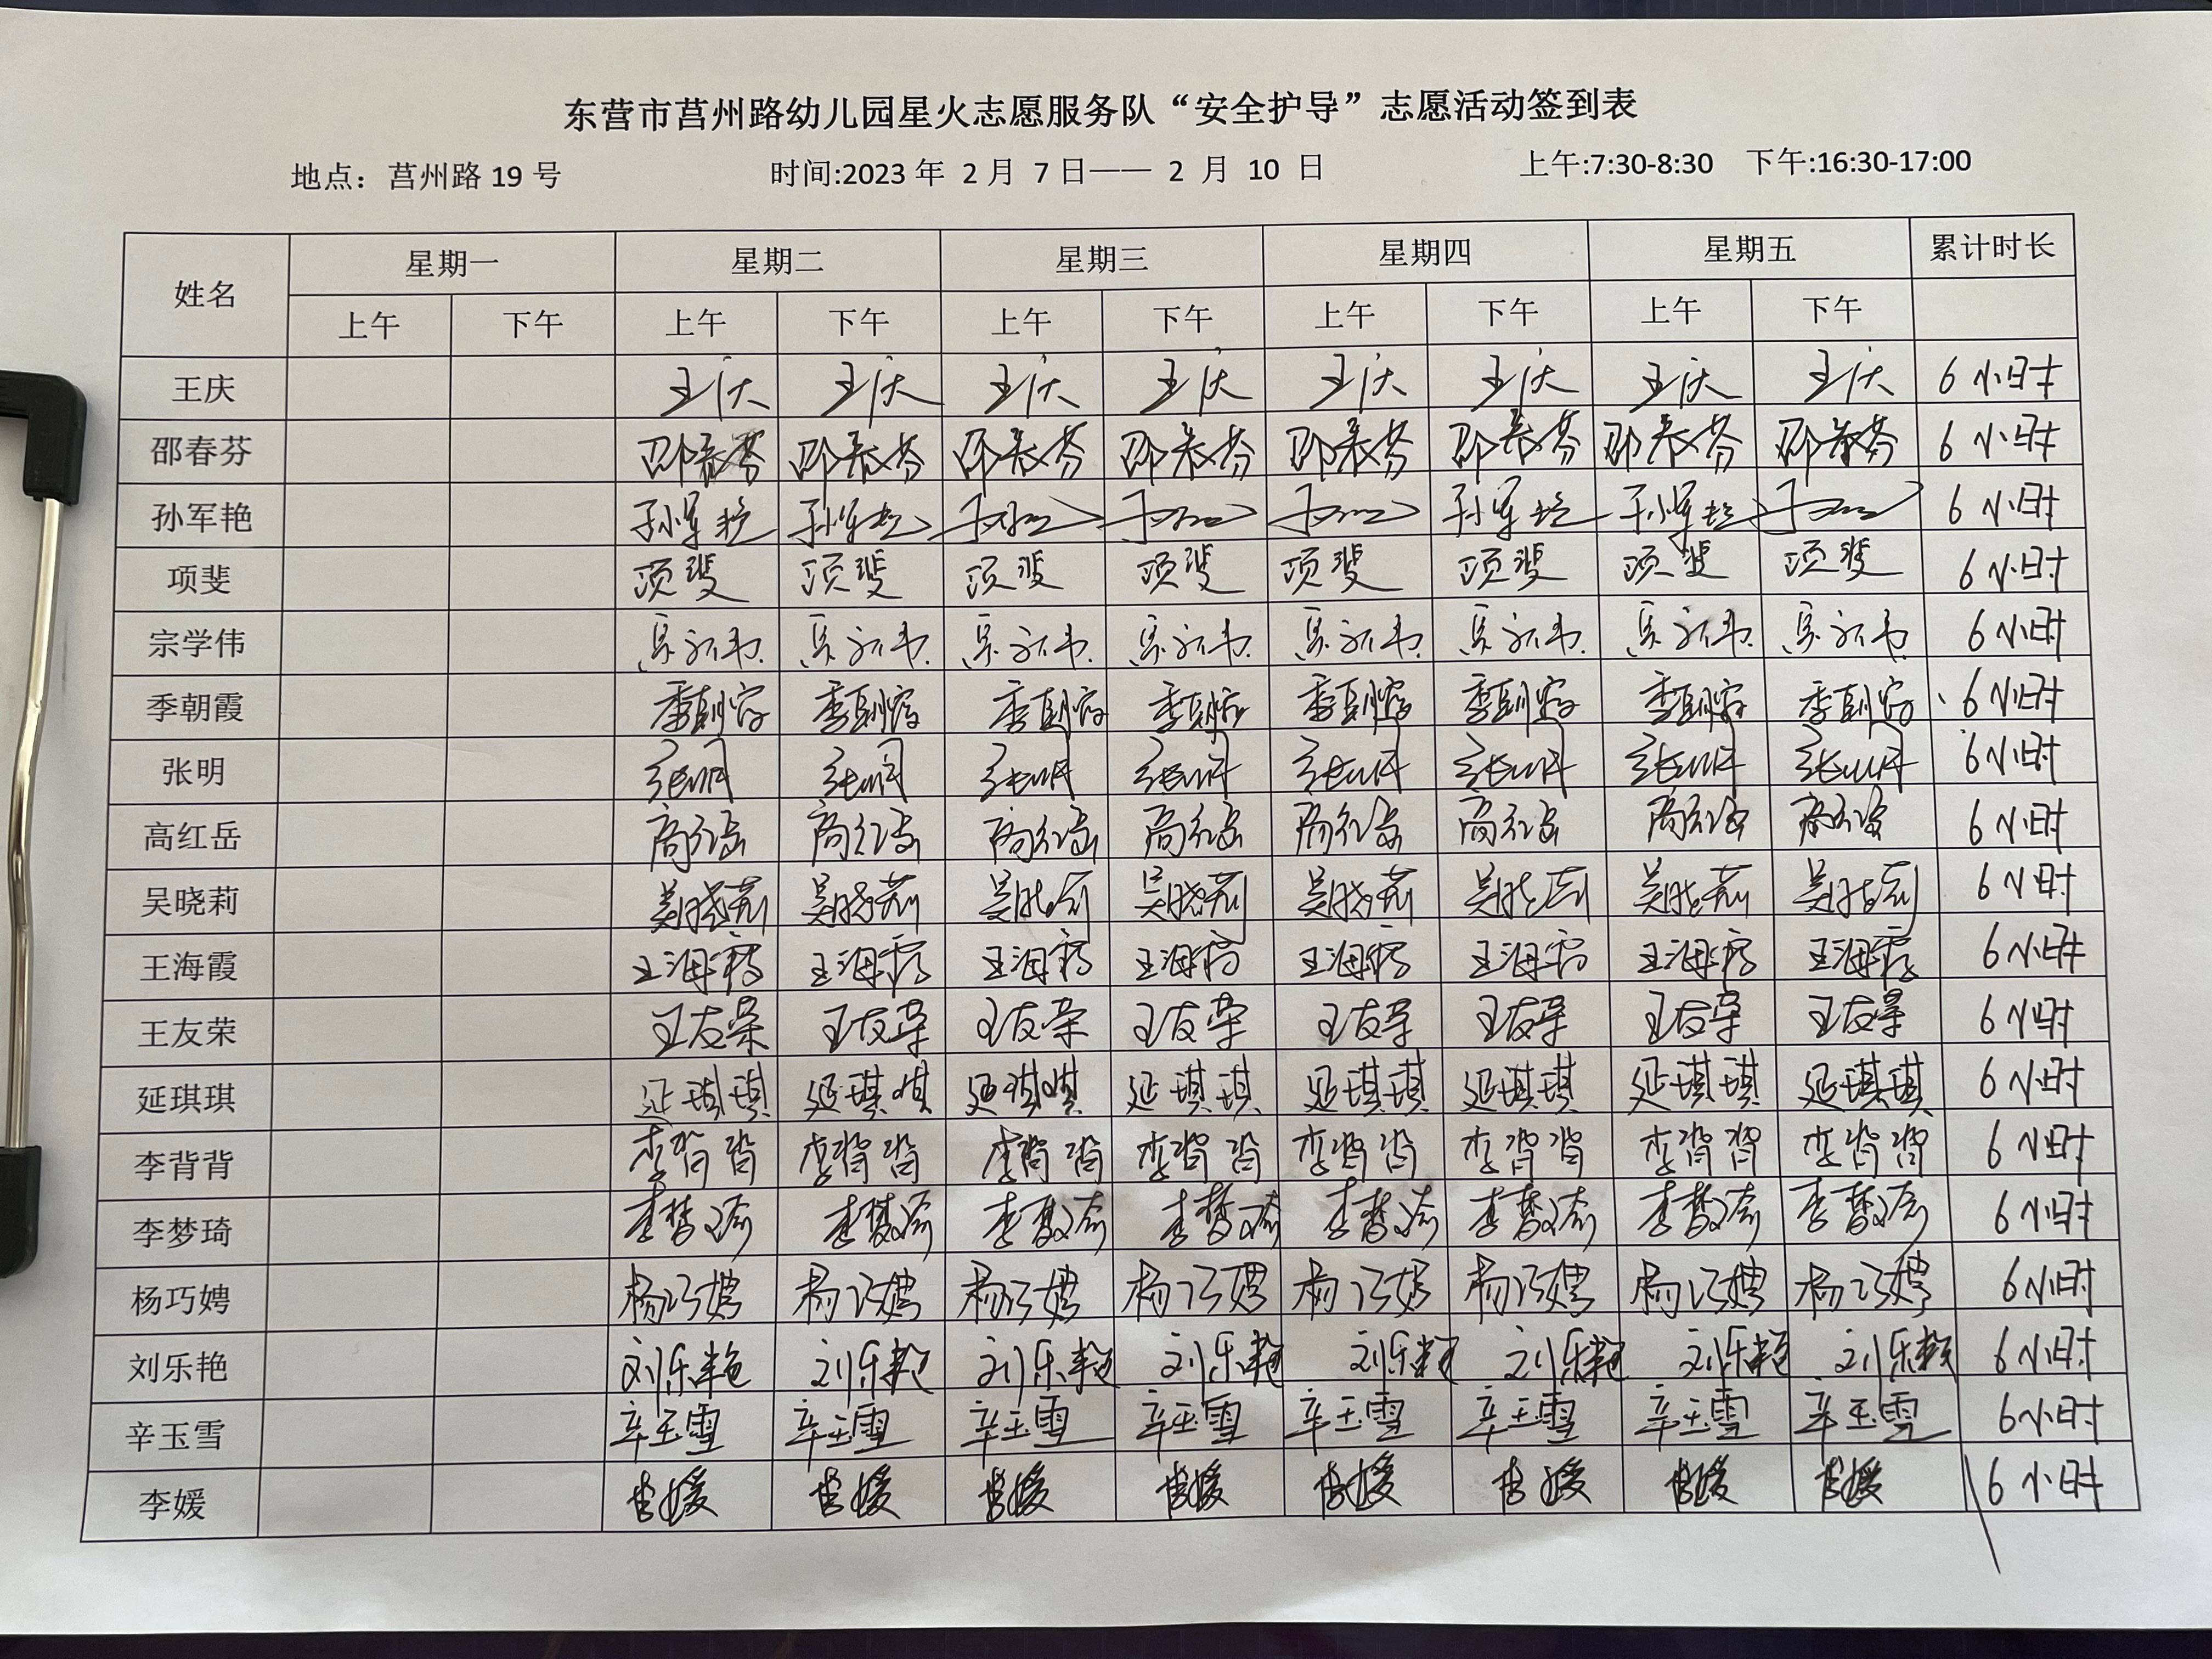 东营市莒州路幼儿园星火志愿服务队“安全护导”志愿活动签到表
地点：莒州路 19 号 时间:2023 年 2 月 7 日—— 2 月 10 日 上午:7:30-8:30 下午:16:30-17:00
姓名 星期一 星期二 星期三 星期四 星期五 累计时长
上午 下午 上午 下午 上午 下午 上午 下午 上午 下午
王庆 王庆 王庆 王庆 王庆 王庆 王庆 王庆 王庆 6小时
邵春芬 邵春芬 邵春芬 邵春芬 邵春芬 邵春芬 邵春芬 邵春芬 邵春芬 6小时
孙军艳 孙军艳 孙军艳 孙军艳 孙军艳 6小时
项斐 项斐 项斐 项斐 项斐 项斐 项斐 项斐 项斐 6小时
宗学伟 6小时
季朝霞 季朝霞 季朝霞 季朝霞 季朝霞 季朝霞 季朝霞 季朝霞 季朝霞 6小时
张明 张明 张明 张明 张明 张明 张明 张明 张明 6小时
高红岳 高红岳 高红岳 高红岳 高红岳 高红岳 高红岳 高红岳 高红岳 6小时
吴晓莉 吴晓莉 吴晓莉 吴晓莉 吴晓莉 吴晓莉 吴晓莉 吴晓莉 吴晓莉 6小时
王海霞 王海霞 王海霞 王海霞 王海霞 王海霞 王海霞 王海霞 王海霞 6小时
王友荣 王友荣 王友荣 王友荣 王友荣 王友荣 王友荣 王友荣 王友荣 6小时
延琪琪 延琪琪 延琪琪 延琪琪 延琪琪 延琪琪 延琪琪 延琪琪 延琪琪 6小时
李背背 李背背 李背背 李背背 李背背 李背背 李背背 李背背 李背背 6小时
李梦琦 李梦琦 李梦琦 李梦琦 李梦琦 李梦琦 李梦琦 李梦琦 李梦琦 6小时
杨巧娉 杨巧娉 杨巧娉 杨巧娉 杨巧娉 杨巧娉 杨巧娉 杨巧娉 杨巧娉 6小时
刘乐艳 刘乐艳 刘乐艳 刘乐艳 刘乐艳 刘乐艳 刘乐艳 刘乐艳 刘乐艳 6小时
辛玉雪 辛玉雪 辛玉雪 辛玉雪 辛玉雪 辛玉雪 辛玉雪 辛玉雪 辛玉雪 6小时
李媛 李媛 李媛 李媛 李媛 李媛 李媛 李媛 李媛 6小时